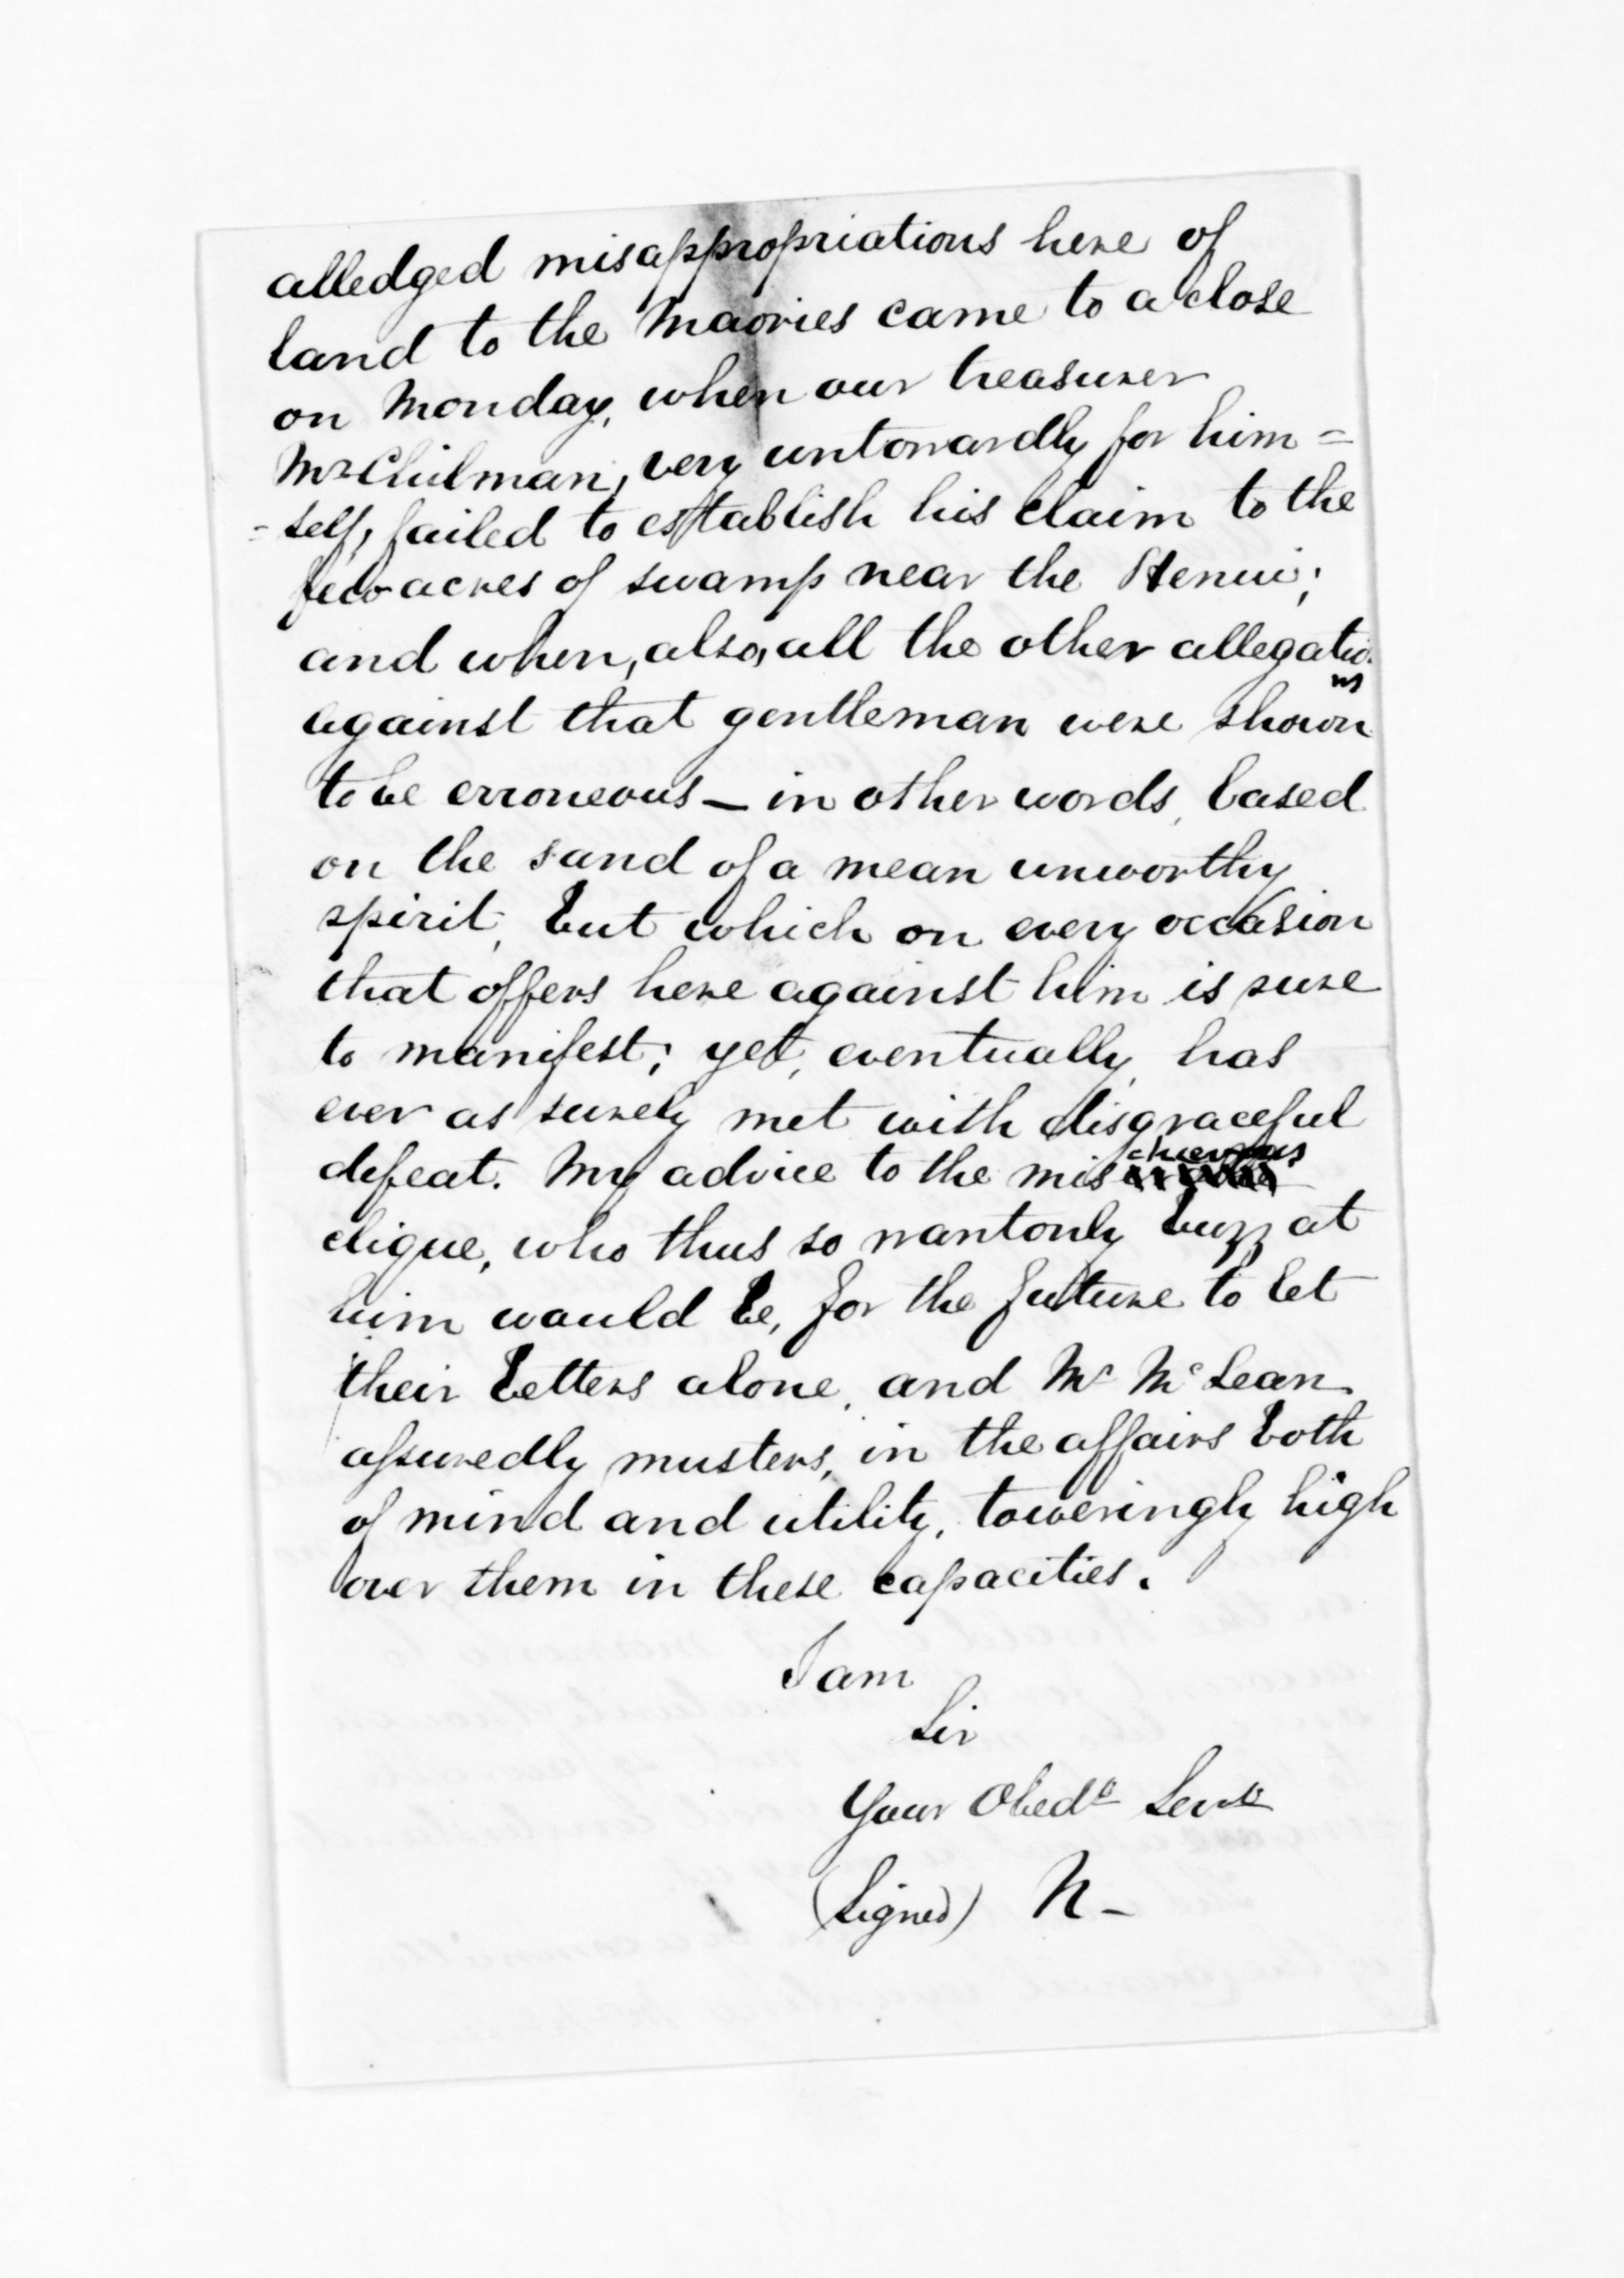 alledged misappropriations here of
land to the Maories came to a close
on Monday, when our treasurer
Mr Chilman, very untowardly for him=
=self, failed to establish his claim to the
few acres of swamp near the Henui;
and when, also, all the other allegations
against that gentleman were shown
to be erroneous — in other words, based
on the sand of a mean unworthy
spirit, but which on every occasion
that offers here against him is sure
to manifest; yet, eventually, has
ever as surely met with disgraceful
defeat. My advice to the mischievous
clique, who thus so wantonly buzz at
him would be, for the future to let
their betters alone, and Mr McLean
assuredly musters, in the affairs both
of mind and utility, toweringly high
over them in these capacities.
I am
Sir
Your Obedt Servt
(Signed) N —